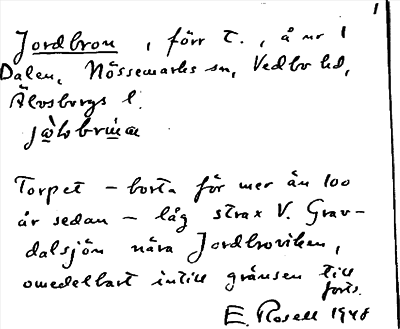 1
Jordbron, förr T., å nr 1
Dalen, Nössemarks sn, Vedbo hd,
Älvsborgs l.
Torpet – borta för mer än 100
år sedan – låg strax V. Grav-
dalsjön nära Jordbroviken,
omedelbart intill gränsen till
forts.
E. Rosell 1948